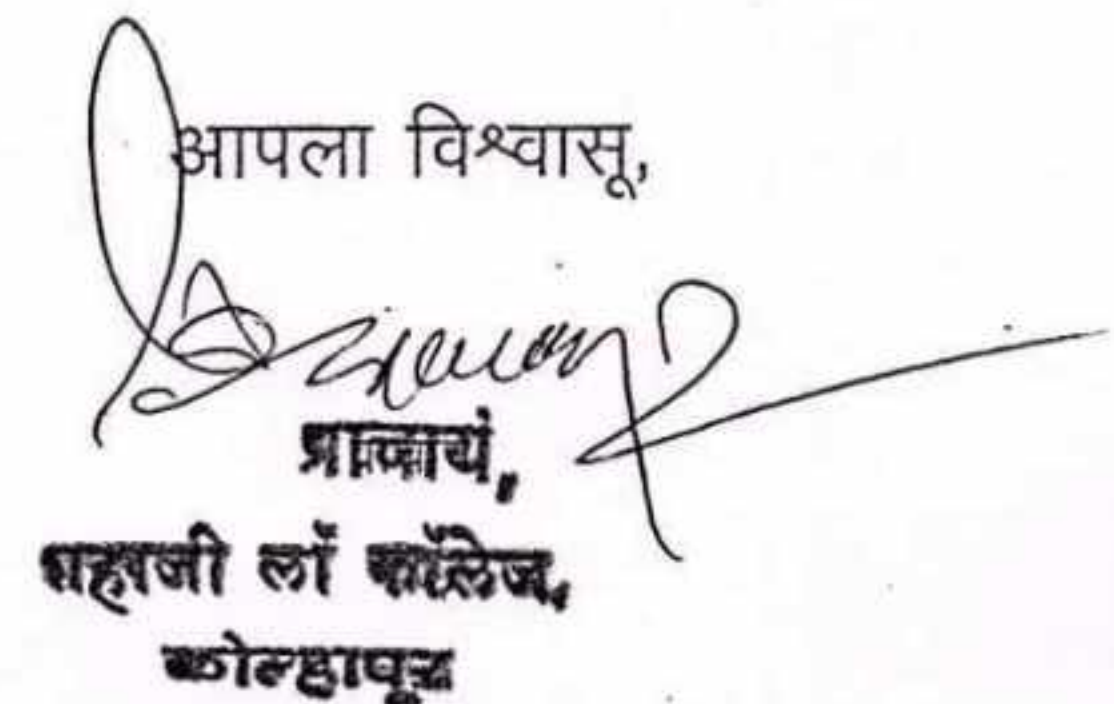 आपला विश्वासू,
प्राचार्य,
शहाजी लॉ कॉलेज,
कोल्हापूर